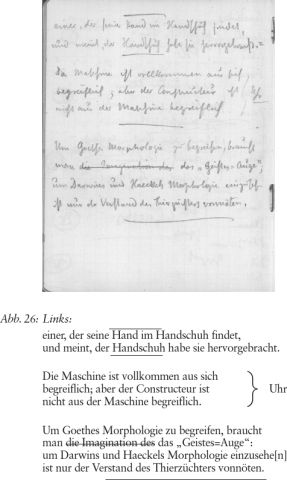 einer, der seine Hand im Handschuh findet,
und meint, der Handschuh habe sie hervorgebracht.=
Die Maschine ist vollkommen aus sich
begreiflich; aber der Constructeur ist
nicht aus der Maschine begreiflich
Uhr
Um Goethes Morphologie zu begreifen, braucht
man die Imagination des das „Geistes=Auge“,
um Darwins und Haeckels Morphologie einzuseh
ist nur der Verstand des Thierzüchters vonnöten.
Abb. 26: Links:
einer, der seine Hand im Handschuh findet,
und meint, der Handschuh habe sie hervorgebracht.
Die Maschine ist vollkommen aus sich
begreiflich; aber der Constructeur ist
nicht aus der Maschine begreiflich.
Uhr
Um Goethes Morphologie zu begreifen, braucht
man die Imagination des das „Geistes=Auge“:
um Darwins und Haeckels Morphologie einzusehe[n]
ist nur der Verstand des Thierzüchters vonnöten.